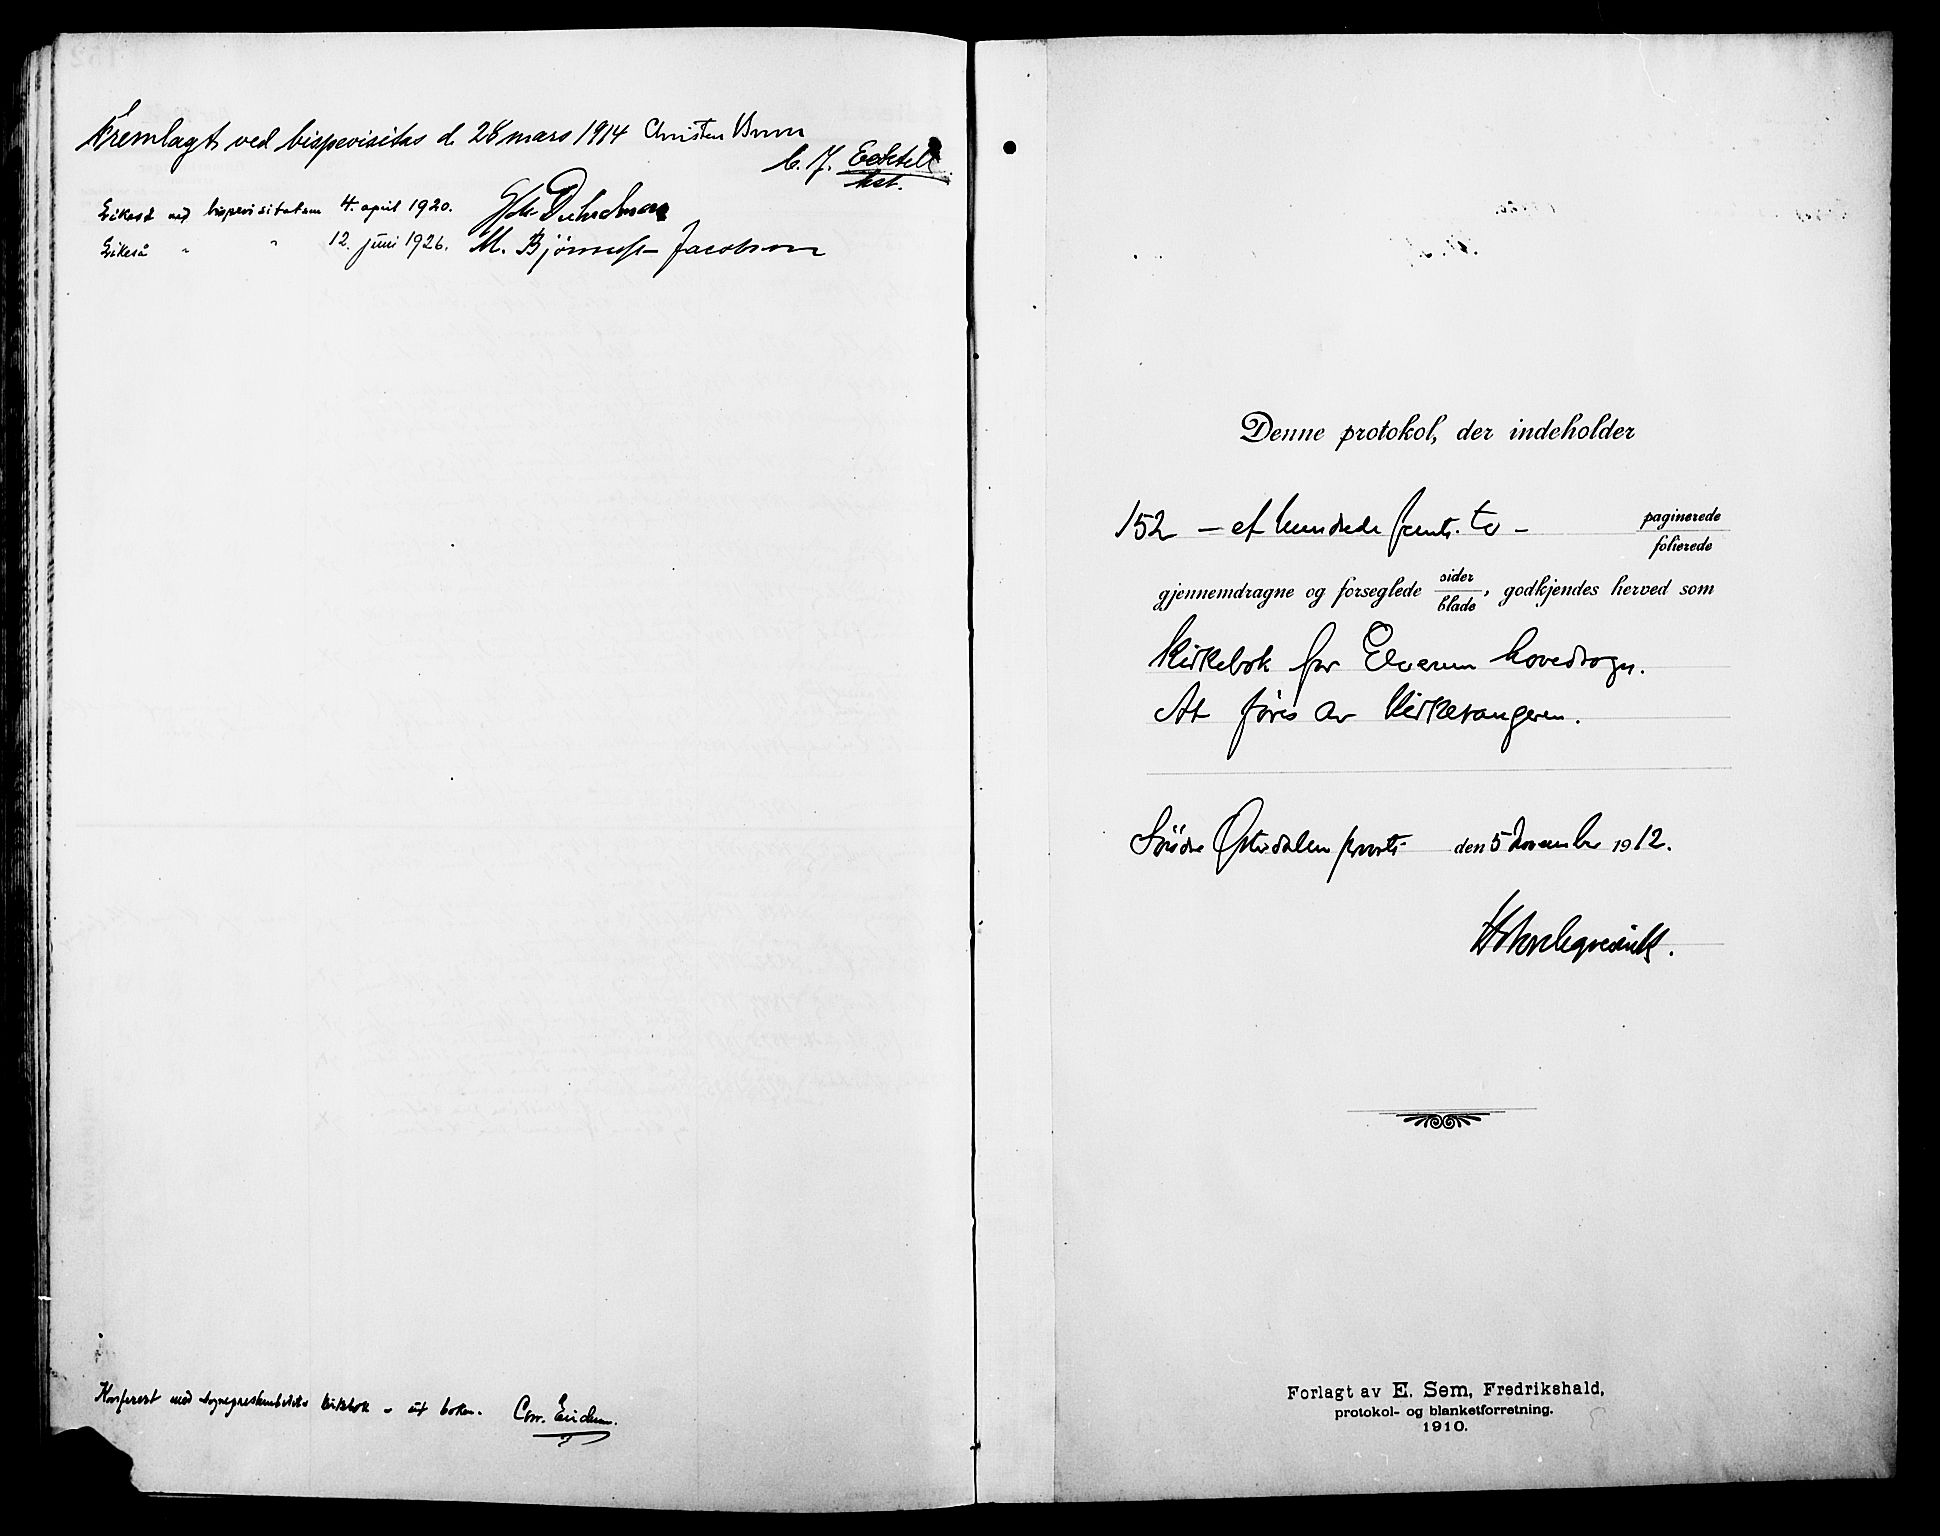 Fremlagt ved bispevisitas d. 28 mars 1914 Christen Brun
C. J.
kst.
ved bispevisitatsen 4. april 1920.
" " 12. juni 1926. M. Bjønness-Jacobsen
Konferert med sogneprestembedets kirkebok - ut boken.
Denne protokol, der indeholder
152 - et hundrede femti to - paginerede
folierede
gjennemdragne og forseglede sider
blade, godkjendes herved som
Kirkebok for Elverum hovedsogn.
At føres av Kirkesangeren.
Søndre Østerdalen provsti den 5 November 1912.
Forlagt av E. Sem, Fredrikshald,
protokol- og blanketforretning.
1910.